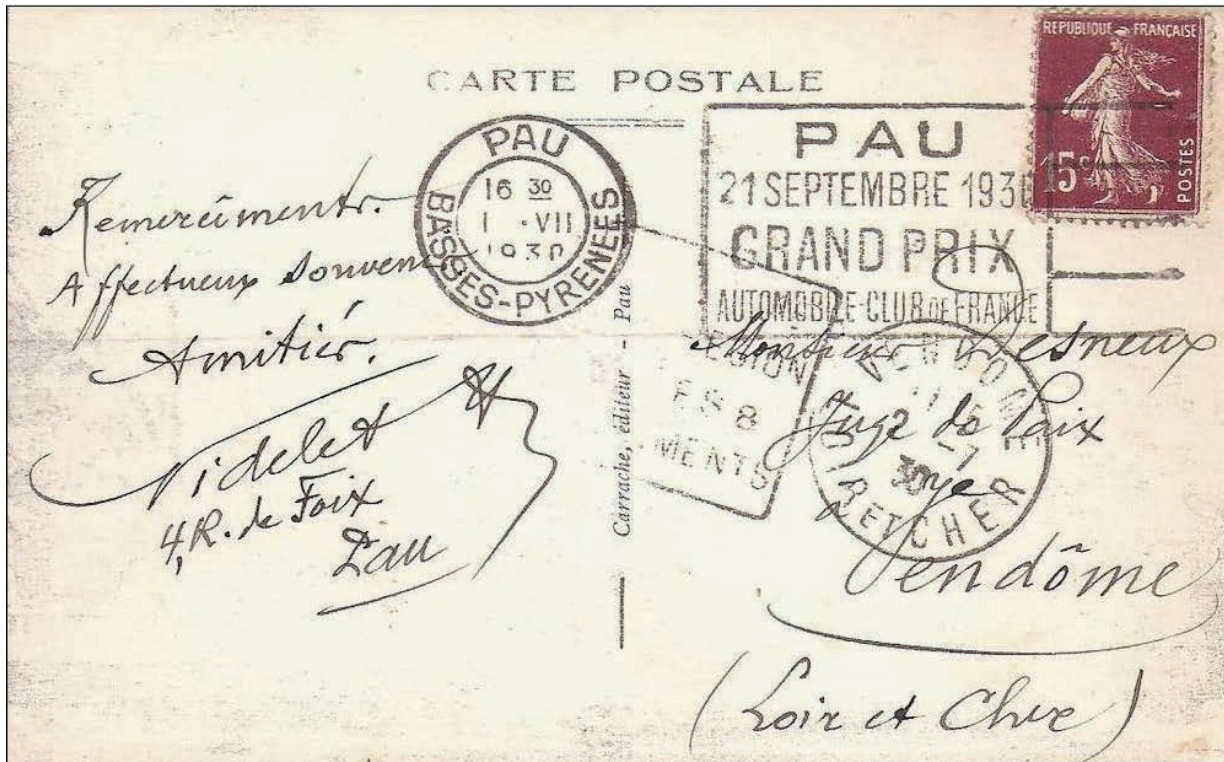 CARTE POSTALE
REPUBLIQUE FRANÇAISE
15c
POSTES
PAU
16 30
1 · VII
1930
BASSES-PYRENEES
PAU
21 SEPTEMBRE 1930
GRAND PRIX
AUTOMOBILE-CLUB DE FRANCE
Remerciments.
Affectueux Souvenir
Amitiés.
Videlet
4, R. de Foix
Pau
Carrache, éditeur - Pau
MENTS
VENDOME
2 -7
30
LOIR ET CHER
Monsieur Desneux
Juge de Paix
Vendôme
(Loir et Cher)